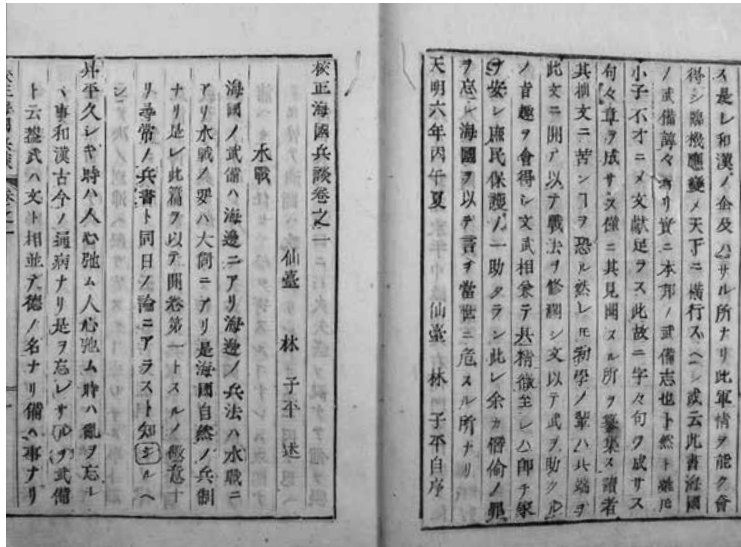 ス是レ和漢ノ企及ハサル所ナリ此軍情ヲ能ク會
得シ臨機應變メ天下ニ横行スヘシ或云此書海國
ノ武備薄々ナリ實ニ本邦ノ武備志也ト然ト雖𪜈
小子不才ニメ文獻足ラス此故ニ字々句ヲ成サス
句々章ヲ成サス僅ニ其見聞スル所ヲ纂集ス讀者
其拙文ニ苦ンヿヲ恐ル然レ𪜈初學ノ輩ハ此端ヲ
此文ニ開テ以テ戰法ヲ修潤シ文以テ武ヲ助クル
ノ旨趣ヲ會得シ文武相兼テ其精微至レハ即チ家
ヲ安シ庶民保護ノ一助タラン此レ余カ僭偷ノ罪
ヲ忘レ海國ヲ以テ言ヲ當世ニ危スル所ナリ
天明六年丙午夏 仙臺 林 子平自序
校正海國兵談卷之一
仙臺 林 子平 述
水戰
海國ノ武備ハ海邊ニアリ海邊ノ兵法ハ水戰ニ
アリ水戰ノ要ハ大銃ニアリ是海國自然ノ兵制
ナリ是レ此篇ヲ以テ開卷第一トスルノ微意ナ
リ尋常ノ兵書ト同日ノ論ニアラスト知ルヘ
シ
昇平久シキ時ハ人心弛ム人心弛ム時ハ亂ヲ忘ル
事和漢古今ノ通病ナリ是ヲ忘レサルヲ武備
ト云蓋武ハ文ト相並テ德ノ名ナリ備ハ事ナリ
校正海國兵談 卷之一